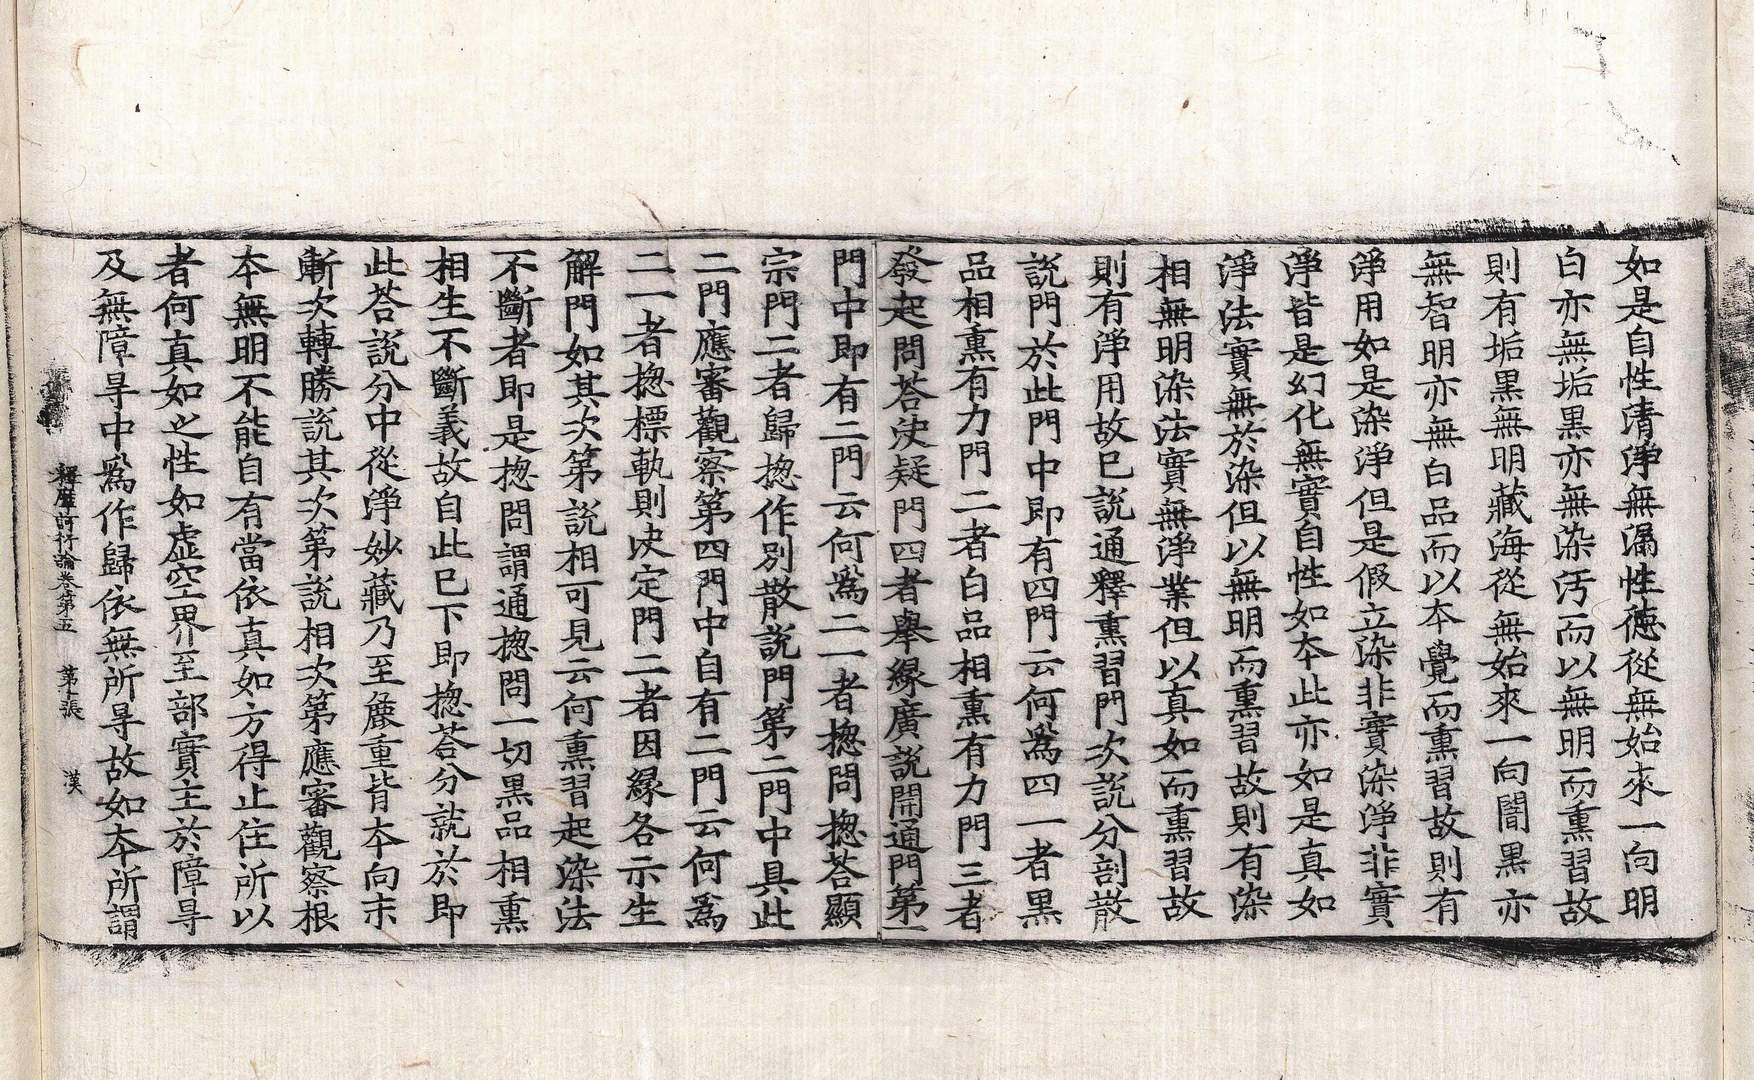 如是自性清淨無漏性德從無始來一向明
白亦無垢黑亦無染汚而以無明而熏習故
則有垢黑無明藏海從無始來一向闇黑亦
無智明亦無白品而以本覺而熏習故則有
淨用如是染淨但是假立染非實染淨非實
淨皆是幻化無實自性如本此亦如是真如
淨法實無於染但以無明而熏習故則有染
相無明染法實無淨業但以真如而熏習故
則有淨用故已說通釋熏習門次說分剖散
說門於此門中即有四門云何爲四一者黒
品相熏有力門二者白品相熏有力門三者
發起問荅决疑門四者舉緣廣說開通門第一
門中即有二門云何爲二一者揔問揔荅顯
宗門二者歸揔作別散說門第二門中具此
二門應審觀察第四門中自有二門云何爲
二一者揔標軌則决定門二者因緣各示生
解門如其次第說相可見云何熏習起染法
不斷者即是揔問謂通揔問一切黒品相熏
相生不斷義故自此已下即揔荅分就於即
此荅說分中從淨妙藏乃至麁重皆本向末
漸次轉勝說其次第說相次第應審觀察根
本無明不能自有當依真如方得止住所以
者何真如之性如虛空界至部實主於障㝵
及無障㝵中爲作歸依無所㝵故如本所謂
釋摩訶衍論卷第五 第十張 漢